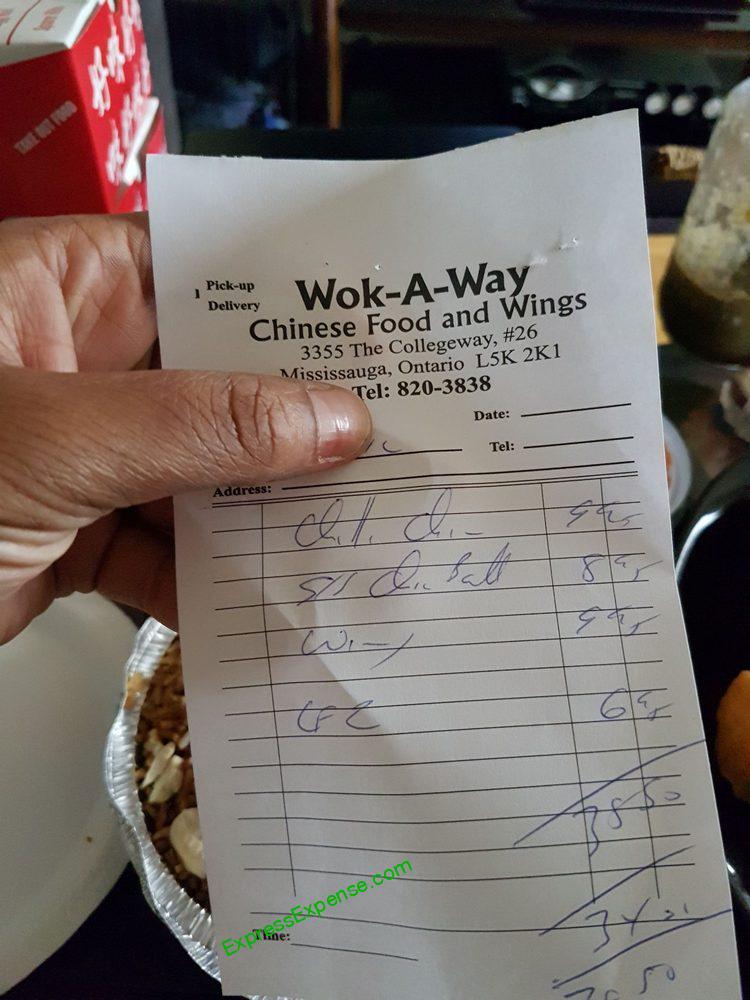 TAKE OUT FOOD
Pick-up
Delivery
Wok-A-Way
Chinese Food and Wings
3355 The Collegeway, #26
Mississauga, Ontario L5K 2K1
Tel: 820-3838
Date:
Tel:
Address:
Chilli Chi 9 95
S/S Chi Ball 8 95
Wing 9 95
CFR 6 95
ExpressExpense.com
Time: